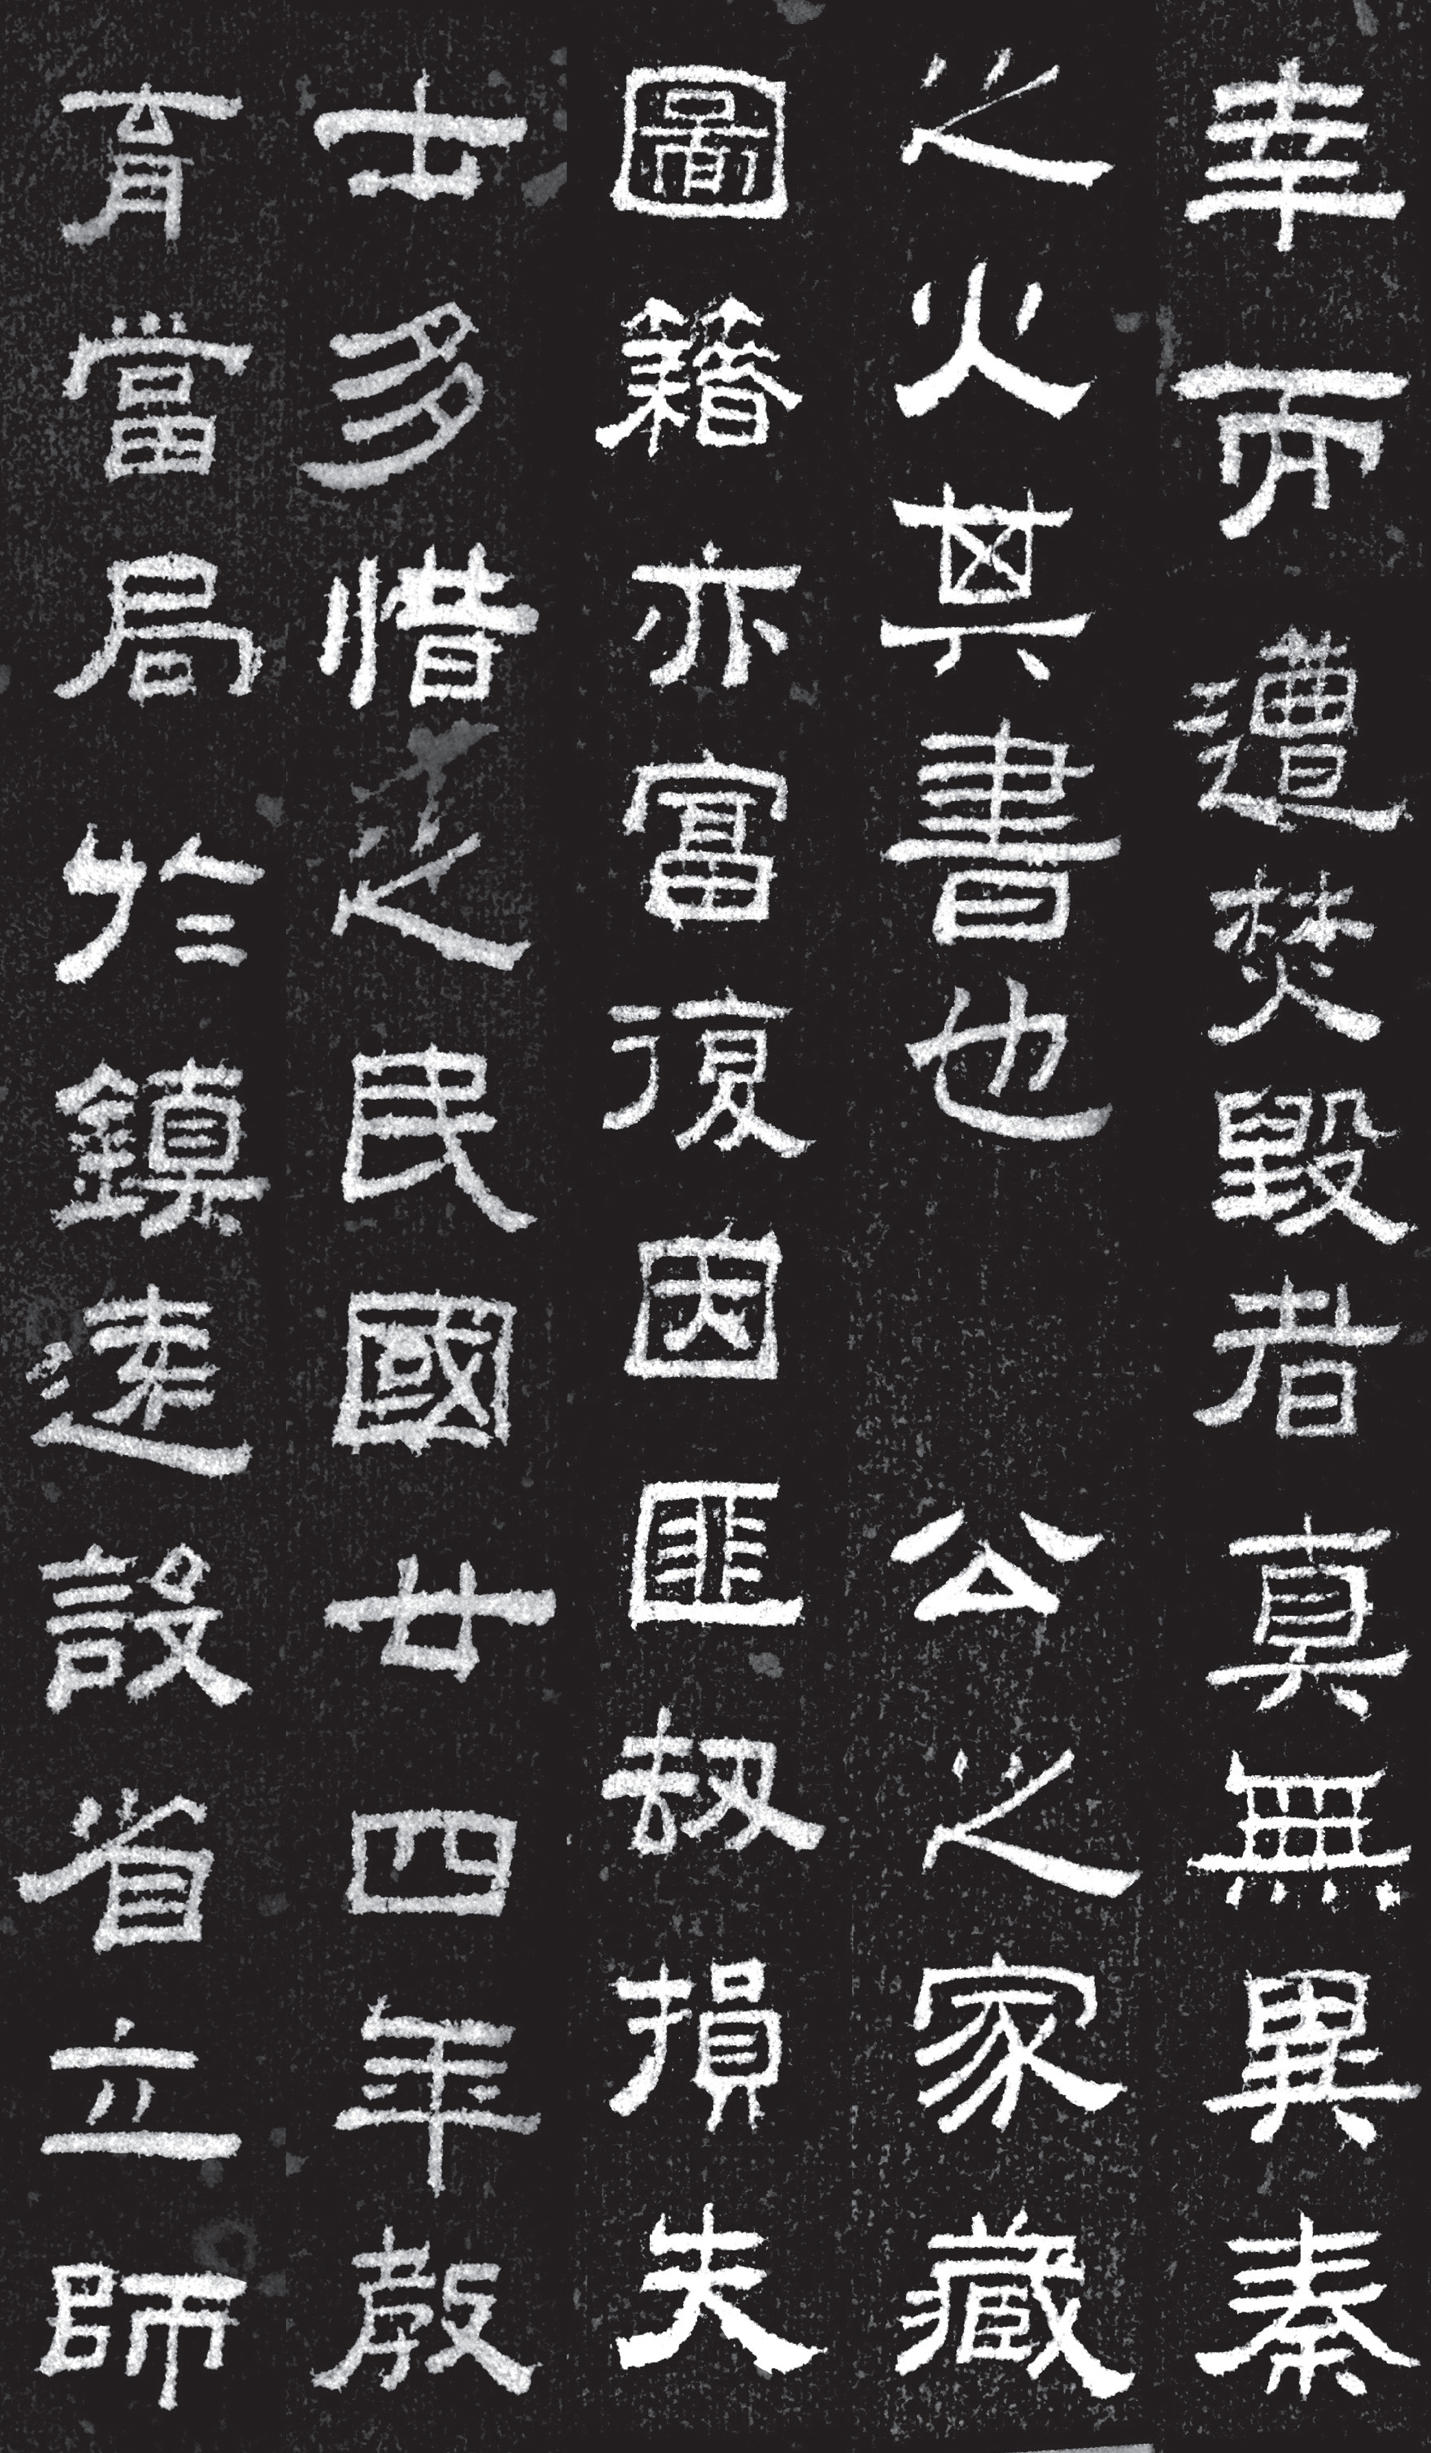 幸而遭焚毀者真無異秦
之火其書也　公之家藏
圖籍亦富復因匪劫損失
士多惜之民國廿四年教
育當局於鎮遠設省立師